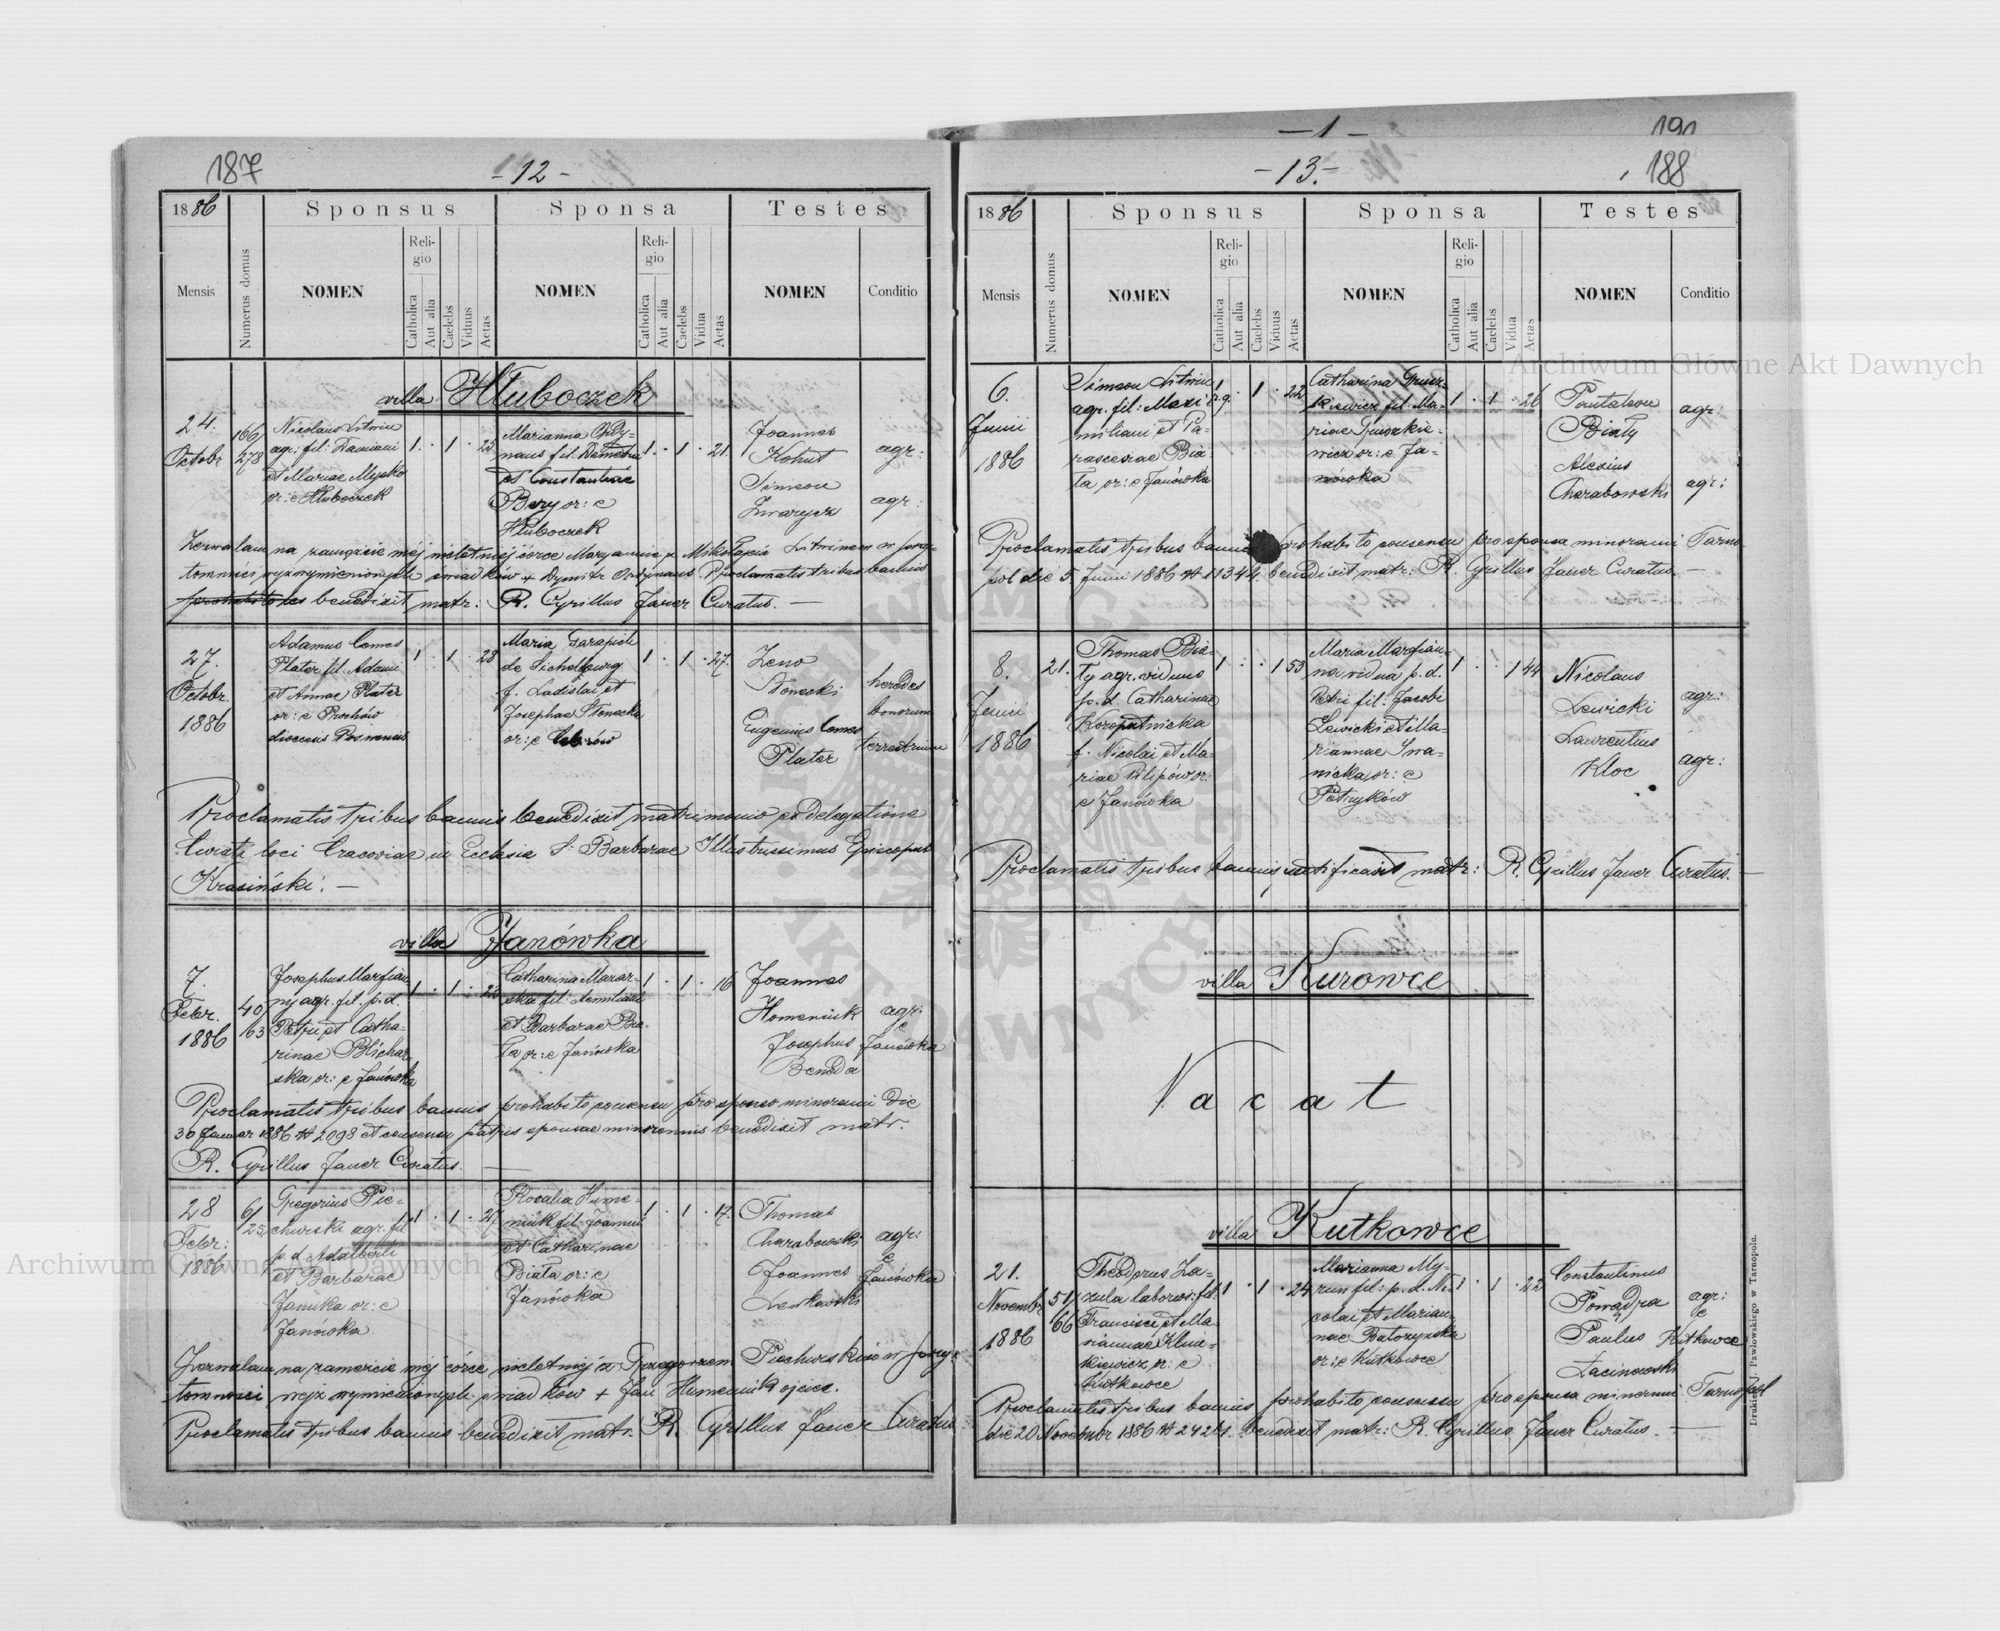 187
- 12 -
1886
Sponsus
Sponsa
Testes
Mensis
Numerus domus
NOMEN
Religio
Catholica
Aut alia
Caelebs
Viduus
Aetas
NOMEN
Religio
Catholica
Aut alia
Caelebs
Vidua
Aetas
NOMEN
Conditio
villa Hłuboczek
24.
Octobr
166/
278
Nicolaus Litwin
agr: fil: Damiani
et Mariae Mysko
or: e Hłuboczek
1 . 1 . 25
Marianna Ordy-
naus fil. Demetrii
et Constantiae
Bery or: e
Hłuboczek
1 . 1 . 21.
Joannes
Kohut
Simeon
Zwarycz
agr:
agr:
Zezwalam na zamęście mej nieletniej córce Maryannie z Mikołajem Litwinem w przy-
tomności wyżwymienionych świadków + Dymitr Ordynaus. Proclamatis tribus bannis
benedixit matr: R. Cyrillus Janer Curatus. —
27.
Octobr.
1886
Adamus Comes
Plater fil. Adami
et Annae Plater
or: e Prochów
diocesis Posnensis
1 . 1 . 28
Maria Garapich
de Sichelburg
f. Ladislai et
Josephae Słonecka
or: e Cebrów
1 . 1 . 27.
Zeno
Słonecki
Eugenius Comes
Plater
heredes
bonorum
terrestrium
Proclamatis tribus bannis benedixit matrimonio ex delegatione
Curati loci Cracoviae in Ecclesia S. Barbarae Illustrissimus Episcopus
Krasiński. —
villa Janówka
7.
Febr.
1886
40/
163
Josephus Marfian
nyj agr. fil. p. d.
Petri et Catha-
rinae Blichar-
ska or: e Janówka
1 . 1 . 23
Catharina Mazar-
ska fil. Aemiliani
et Barbarae Bia-
ła or: e Janówka
1 . 1 . 16
Joannes
Homeniuk
Josephus
Benda
agr:
e
Janówka
Proclamatis tribus bannis, prohabito consensu pro sponso minorenni die
30 Januar 1886 # 2098 et consensu patris sponsae minorennis benedixit matr.
R. Cyrillus Janer Curatus. —
28
Febr:
1886
6/
25
Gregorius Pie-
churski agr. fil
p. d. Adalberti
et Barbarae
Januka or: e
Janówka
1 . 1 . 27
Rosalia Hume-
niuk fil: Joannis
et Catharinae
Biała or: e
Janówka
1 . 1 . 17.
Thomas
Charabowski
Joannes
Lewkowski
agr:
e
Janówka
Zezwalam na zamęście mej córce nieletniej z Grzegorzem Piechurskim w przy-
tomności wyż wymienionych świadków + Jan Humeniuk ojciec.
Proclamatis tribus bannis benedixit matr. R. Cyrillus Janer Curatus
- 1 -
191
- 13. -
188
1886
Sponsus
Sponsa
Testes
Mensis
Numerus domus
NOMEN
Religio
Catholica
Aut alia
Caelebs
Viduus
Aetas
NOMEN
Religio
Catholica
Aut alia
Caelebs
Vidua
Aetas
NOMEN
Conditio
6.
Junii
1886
Simeon Litwin
agr. fil: Maxi-
miliani et Pa-
rascesiae Bia-
ła or: e Janówka
1 . 1 . 22
Catharina Grusz-
kiewicz fil: Ma-
riae Gruszkie-
wicz or: e Ja-
nówka
1 . 1 . 26
Pantaleon
Biały
Alexius
Charabowski
agr:
agr:
Proclamatis tribus bannis prohabito consensu pro sponso minorenni Tarno-
pol die 5 Junii 1886 # 11344. benedixit matr: R. Cyrillus Janer Curatus. —
8.
Junii
1886
21.
Thomas Bia-
ły agr. viduus
p. d. Catharinae
Koropatnicka
f. Nicolai et Ma-
riae Pilipów or:
e Janówka
1 . . 1 53
Maria Marfian-
na vidua p. d.
Petri fil: Jacobi
Lewicki et Ma-
riannae Iwa-
nicka or: e
Petryków
1 . . 1 44
Nicolaus
Lewicki
Laurentius
Kloc
agr:
agr:
Proclamatis tribus bannis ratificavit matr: R. Cyrillus Janer Curatus. —
villa Kurowce
Vacat
villa Kutkowce
21.
Novembr
1886
51/
66
Theodorus Za-
zula laborios: fil:
Francisci et Ma-
riannae Klim-
kiewicz or: e
Kutkowce
1 . 1 . 24
Marianna My-
ron fil: p. d. Ni-
colai et Marian-
nae Batozynska
or: e Kutkowce
1 . 1 . 22
Constantinus
Powadza
Paulus
Łacinowski
agr:
e
Kutkowce
Proclamatis tribus bannis prohabito consensu pro sponsa minorenni Tarnopol
die 20 Novembr 1886 # 24261. benedixit matr: R. Cyrillus Janer Curatus. —
Drukiem J. Pawłowskiego w Tarnopolu.
Archiwum Główne Akt Dawnych
Archiwum Główne Akt Dawnych
ARCHIWUM GŁÓWNE AKT DAWNYCH